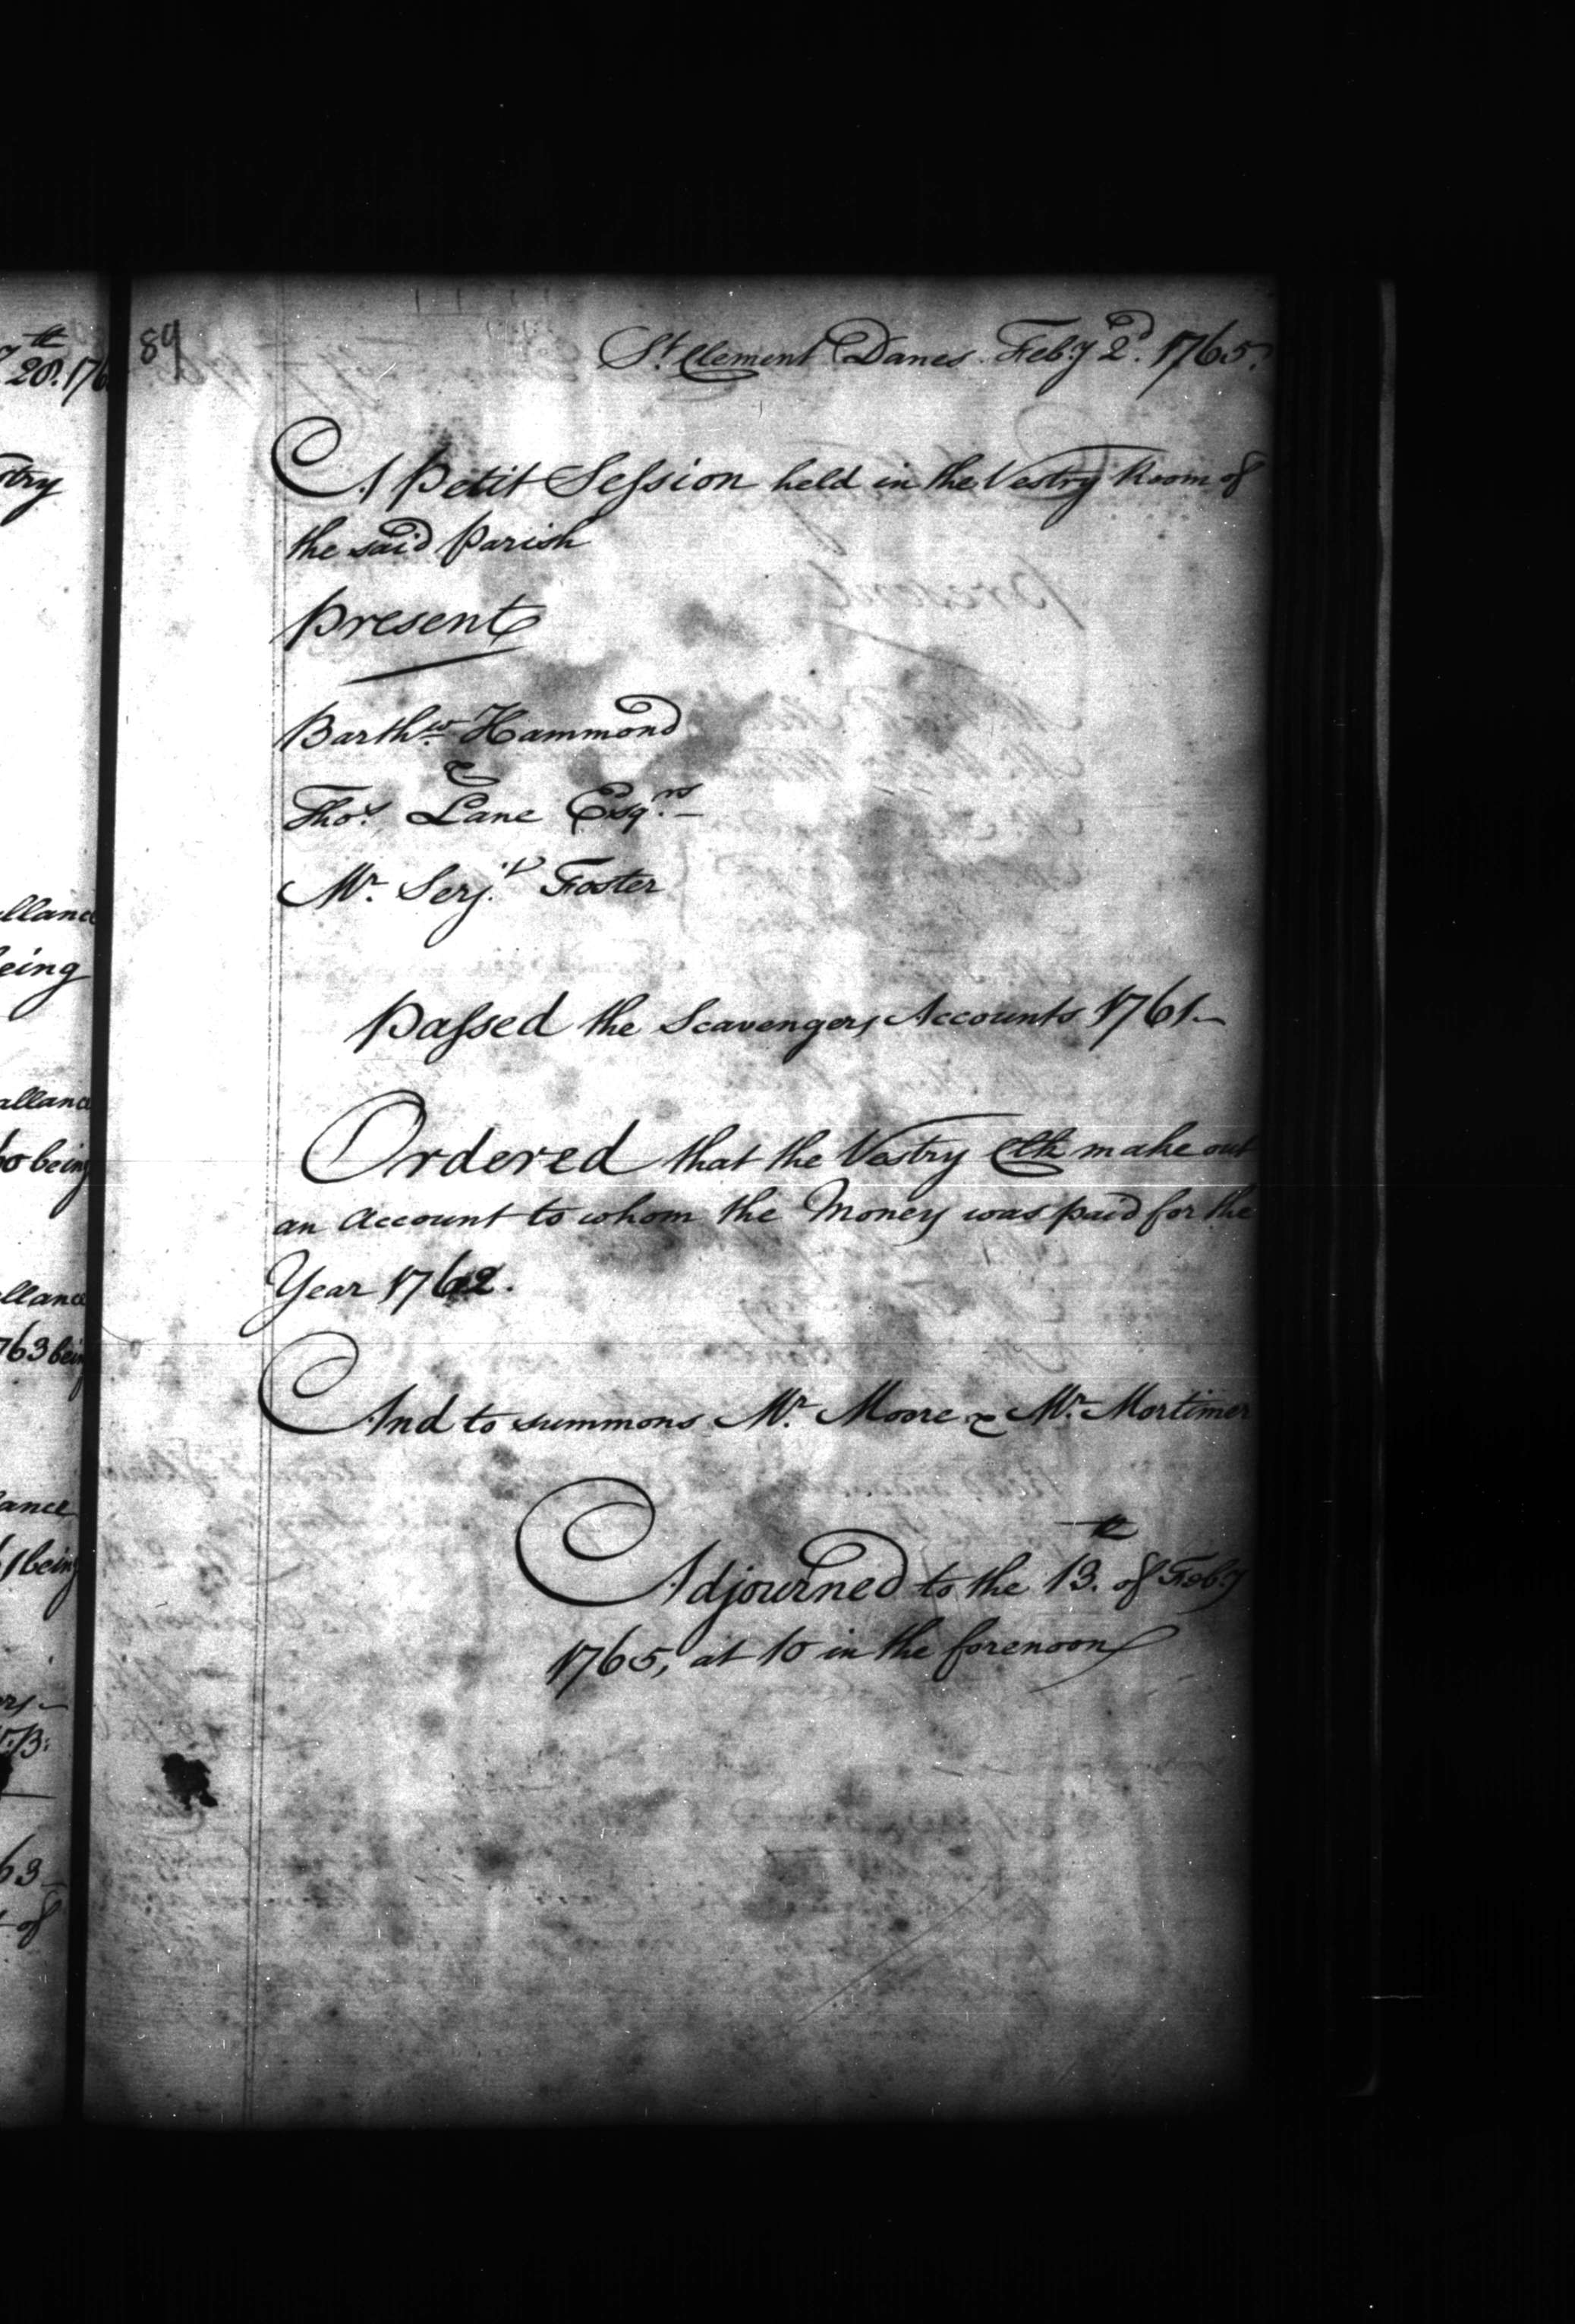 89
St. Clement Danes Feb:y 2d. 1765.
A Petit Session held in the Vestry Room of
the said Parish
Present
Barthw. Hammond
Thos. Lane Esqrs.
Mr. Serjt. Foster
Passed the Scavengers Accounts 1761
Ordered that the Vestry Clk make out
an Account to whom the Money was paid for the
Year 1762.
And to summons Mr. Moore & Mr. Mortimer
Adjourned to the 13th. of Feb:y
1765, at 10 in the forenoon
th
20. 176
try
llance
eing
allance
60 being
llance
763 being
ance
1 being
63
of